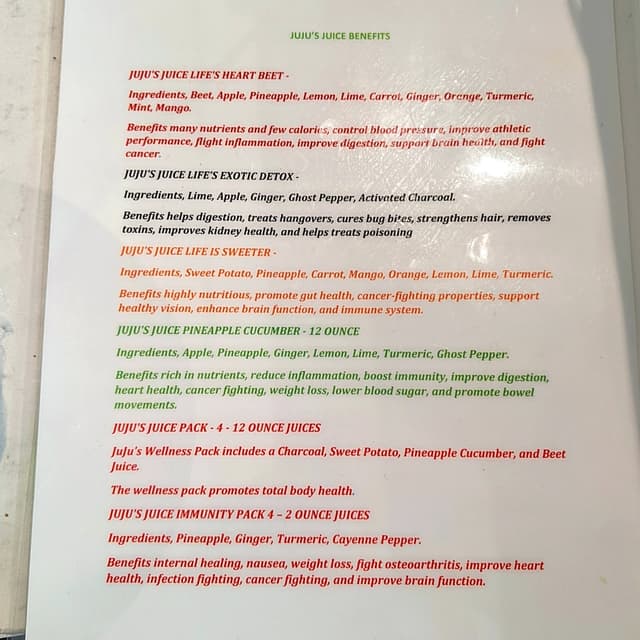 JUJU'S JUICE BENEFITS
JUJU'S JUICE LIFE'S HEART BEET -
Ingredients, Beet, Apple, Pineapple, Lemon, Lime, Carrot, Ginger, Orange, Turmeric,
Mint, Mango.
Benefits many nutrients and few calories, control blood pressure, improve athletic
performance, flight inflammation, improve digestion, support brain health, and fight
cancer.
JUJU'S JUICE LIFE'S EXOTIC DETOX -
Ingredients, Lime, Apple, Ginger, Ghost Pepper, Activated Charcoal.
Benefits helps digestion, treats hangovers, cures bug bites, strengthens hair, removes
toxins, improves kidney health, and helps treats poisoning
JUJU'S JUICE LIFE IS SWEETER -
Ingredients, Sweet Potato, Pineapple, Carrot, Mango, Orange, Lemon, Lime, Turmeric.
Benefits highly nutritious, promote gut health, cancer-fighting properties, support
healthy vision, enhance brain function, and immune system.
JUJU'S JUICE PINEAPPLE CUCUMBER - 12 OUNCE
Ingredients, Apple, Pineapple, Ginger, Lemon, Lime, Turmeric, Ghost Pepper.
Benefits rich in nutrients, reduce inflammation, boost immunity, improve digestion,
heart health, cancer fighting, weight loss, lower blood sugar, and promote bowel
movements.
JUJU'S JUICE PACK - 4 - 12 OUNCE JUICES
JuJu's Wellness Pack includes a Charcoal, Sweet Potato, Pineapple Cucumber, and Beet
Juice.
The wellness pack promotes total body health.
JUJU'S JUICE IMMUNITY PACK 4 – 2 OUNCE JUICES
Ingredients, Pineapple, Ginger, Turmeric, Cayenne Pepper.
Benefits internal healing, nausea, weight loss, fight osteoarthritis, improve heart
health, infection fighting, cancer fighting, and improve brain function.